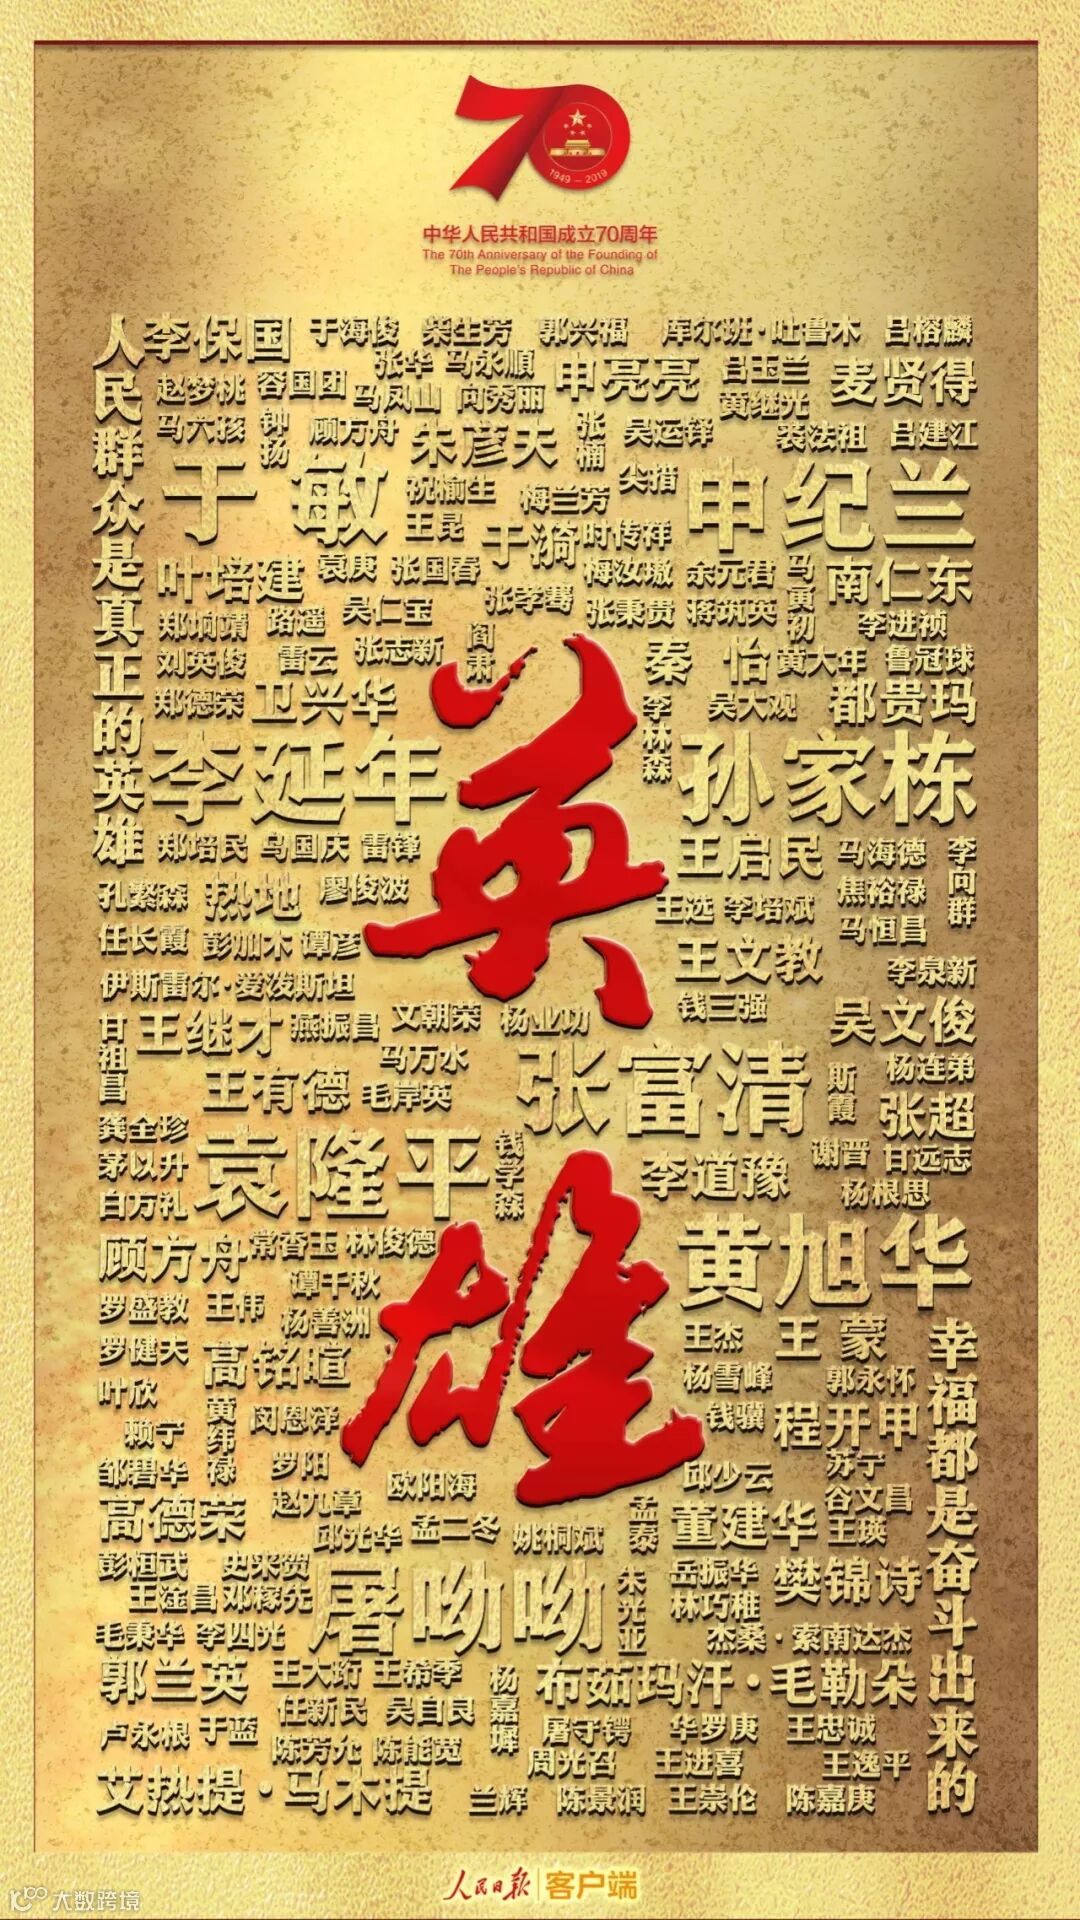 70
1949 - 2019
中华人民共和国成立70周年
The 70th Anniversary of the Founding of
The People's Republic of China
人民群众是真正的英雄
李保国 于海俊 柴生芳 郭兴福 库尔班·吐鲁木 吕榕麟
张华 马永順
赵梦桃 容国团 马凤山 向秀丽 申亮亮 吕玉兰 麦贤得
黄继光
马六孩 钟扬 顾方舟 朱彦夫 张楠 吴运铎 裘法祖 吕建江
于敏 祝榆生 梅兰芳 尖措 申纪兰
王昆 于漪 时传祥
叶培建 袁庚 张国春 梅汝璈 余元君 马寅初 南仁东
张孝骞
郑垧靖 路遥 吴仁宝 张秉贵 蒋筑英 李进祯
刘英俊 雷云 张志新 阎肃 秦怡 黄大年 鲁冠球
郑德荣 卫兴华 李林森 吴大观 都贵玛
英
李延年 孙家栋
郑培民 乌国庆 雷锋 王启民 马海德 李向群
孔繁森 热地 廖俊波 王选 李培斌 焦裕禄
任长霞 彭加木 谭彦 王文教 马恒昌
伊斯雷尔·爱泼斯坦 李泉新
甘祖昌 王继才 燕振昌 文朝荣 杨业功 钱三强 吴文俊
马万水 张富清 斯霞 杨连弟
王有德 毛岸英 张超
龚全珍
茅以升 袁隆平 钱学森 李道豫 谢晋 甘远志
白万礼 杨根思
雄
顾方舟 常香玉 林俊德 黄旭华
谭千秋
罗盛教 王伟 杨善洲
罗健夫 高铭暄 王杰 王蒙
叶欣 黄纬禄 闵恩泽 杨雪峰 郭永怀
赖宁 钱骥 程开甲
邹碧华 罗阳 欧阳海 邱少云 苏宁
高德荣 赵九章 孟泰 董建华 谷文昌
邱光华 孟二冬 姚桐斌 王瑛
彭桓武 史来贺 屠呦呦 朱光亚 岳振华 樊锦诗
王淦昌 邓稼先 林巧稚
毛秉华 李四光 杰桑·索南达杰
郭兰英 王大珩 王希季 杨嘉墀 布茹玛汗·毛勒朵
任新民 吴自良
卢永根 于蓝 屠守锷 华罗庚 王忠诚
陈芳允 陈能宽 周光召 王进喜 王逸平
艾热提·马木提 兰辉 陈景润 王崇伦 陈嘉庚
幸福都是奋斗出来的
人民日报 客户端
大数跨境